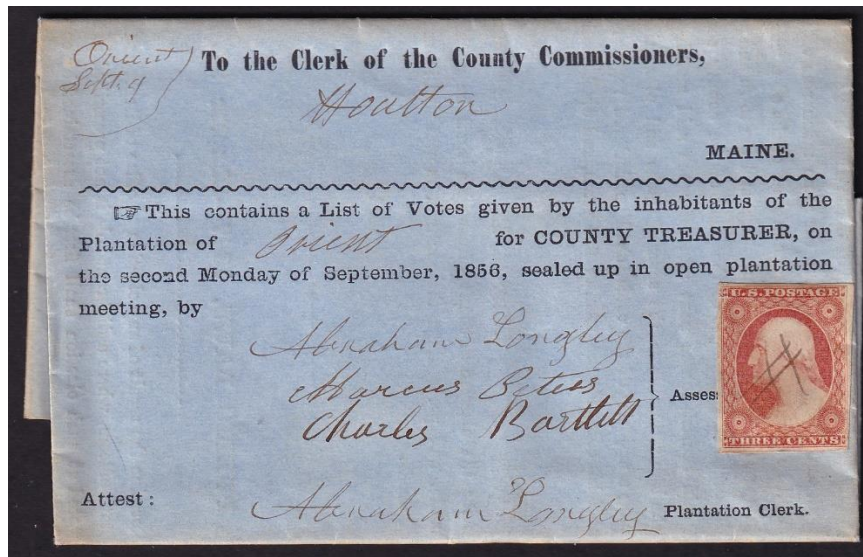 Orient
Sept. 9
To the Clerk of the County Commissioners,
Houlton
MAINE.
☞ This contains a List of Votes given by the inhabitants of the
Plantation of Orient for COUNTY TREASURER, on
the second Monday of September, 1856, sealed up in open plantation
meeting, by
U.S. POSTAGE
Abraham Longley
Marcus Peters
Assess
Charles Bartlett
THREE CENTS
Attest :
Abraham Longley Plantation Clerk.